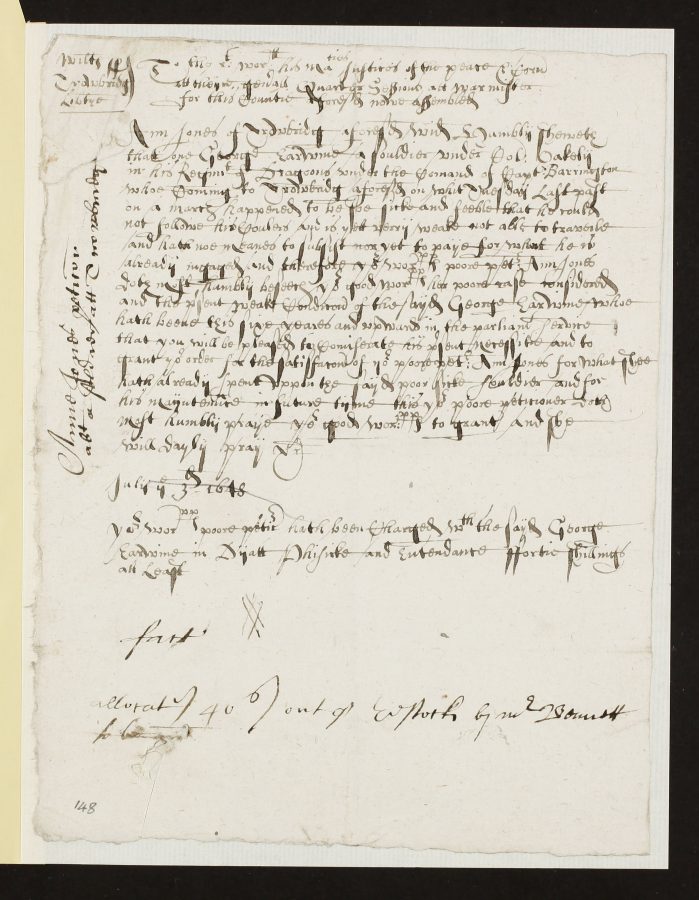 Wilts
Trowbridg
Libtye
To the rt worll his maties Justices of the peace
att theyre genall Quarter Sessions att Warmister
for this Countie aforesd nowe assembled
Ann Jones of Trowbridg aforesd Wid Humbly sheweth
that one George Earwine a souldier under Col.
in his Regimt of Dragoons under the Comand of Capt Barrington
whoe Coming to Trowbridg aforesd on What Tuesday Last past
on a march happened to be soe sicke and feeble that he could
not followe his Coulers and is yet verry weake not able to travaile
and hath noe meanes to subsist nor yet to paye for what he is
already ingaged and therefore yor worpps poore petr Ann Jones
doth most humbly beseech yor good worpps her poore case considered
and the psent weake Condicon of the sayd George Earwine whoe
hath beene this six yeares and upward in the parliamt service
that you will be pleased to Comiserate his psent necessitie and to
grant yor order for the satisfaccon of yor poore petr Ann Jones for what shee
hath already spent uppon the sayd poor sicke souldier and for
his mayntenance in future tyme this yor poore petitioner doth
most humbly praye yor good worpps to grant and she
will dayly pray &c
July ye 3th 1648
yor worpps poore petir hath been Charged wth the sayd George
Earwine in Dyatt Phisicke and Attendance ffortie shillings
att Least
allocatr 40s out of stock by mr Bennett
Anne Jones peticon
abt a souldr att Trowbridg
148